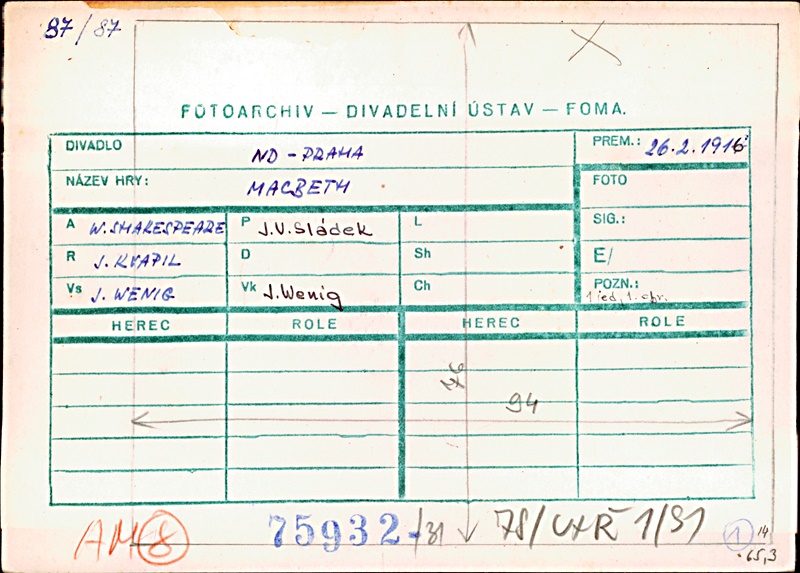 87/87
FOTOARCHIV — DIVADELNÍ ÚSTAV — FOMA.
DIVADLO ND - PRAHA PREM.: 26.2.1916
NÁZEV HRY: MACBETH FOTO
A W. SHAKESPEARE P J.V. Sládek L SIG.:
R J. KVAPIL D Sh E/
Vs J. WENIG Vk J. Wenig Ch POZN.:
1 jed, 1. obr.
HEREC ROLE HEREC ROLE
76
94
AM 8 75932 /31 1 14
65,3